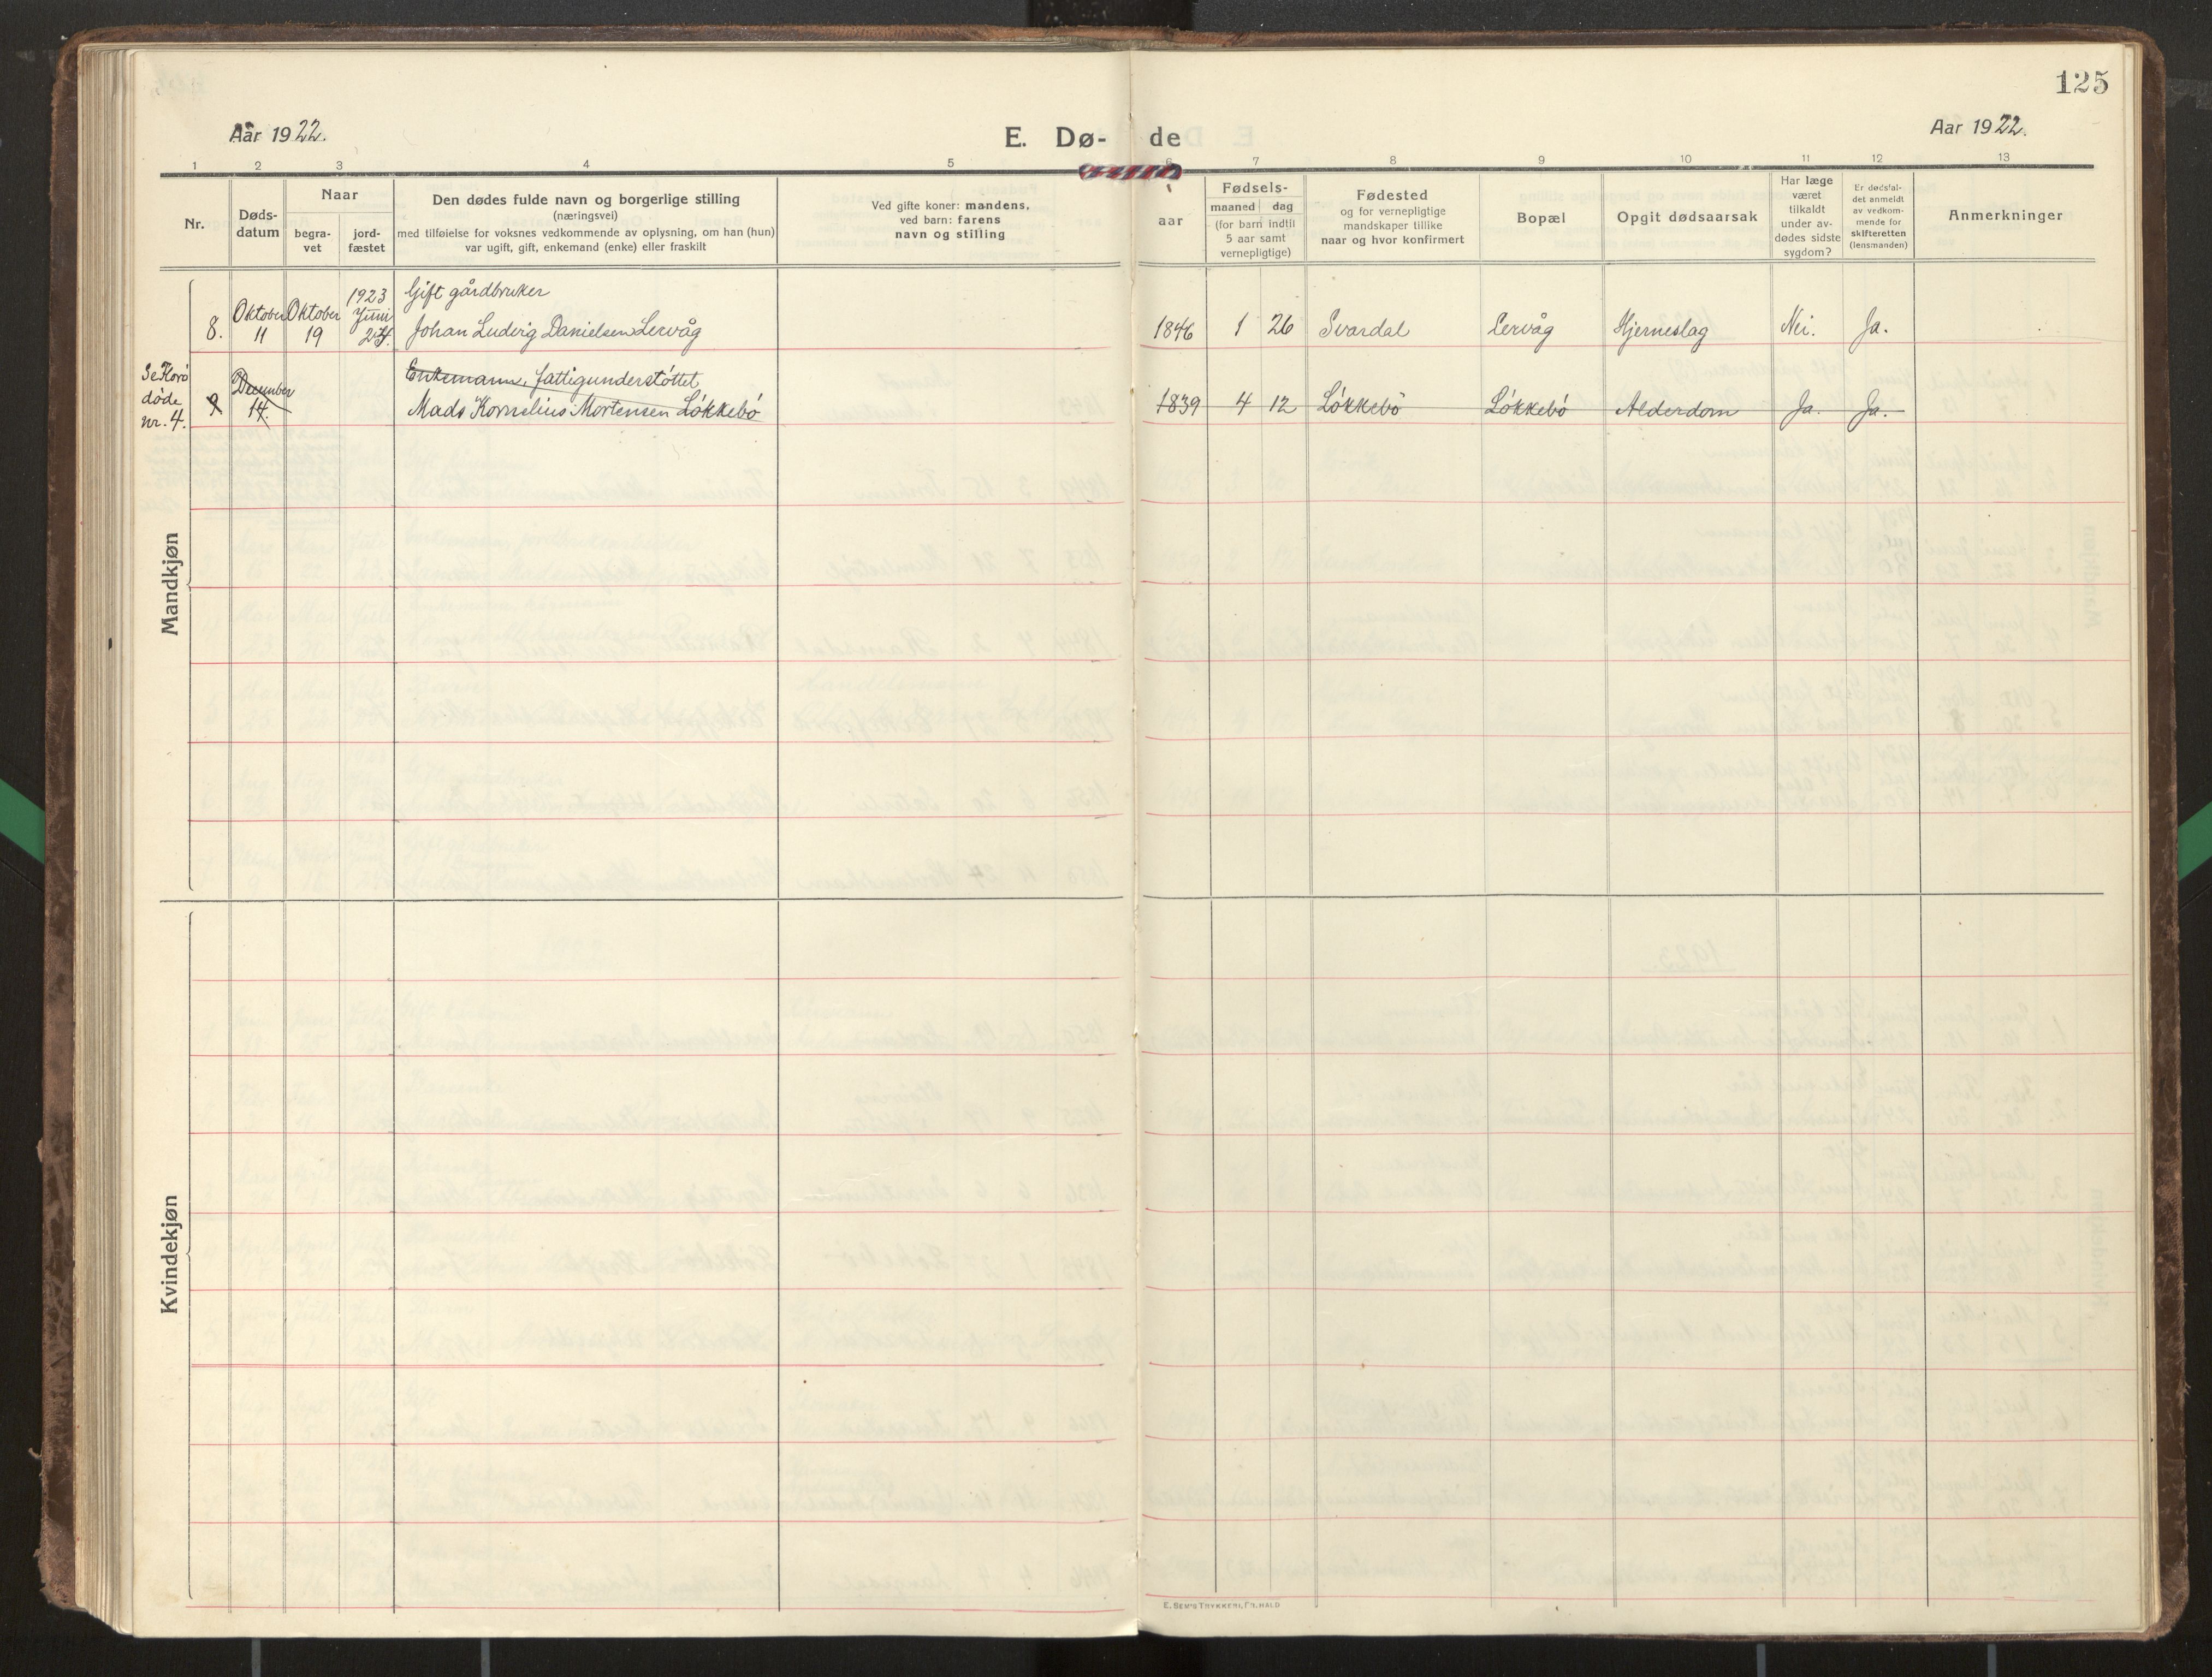 125
Aar 1922.
E. Dø- de
Aar 1922.
1 2 3 4 5 6 7 8 9 10 11 12 13
Nr.
Døds-
datum
Naar
begra-
vet
jord-
fæstet
Den dødes fulde navn og borgerlige stilling
(næringsvei)
med tilføielse for voksnes vedkommende av oplysning, om han (hun)
var ugift, gift, enkemand (enke) eller fraskilt
Ved gifte koner: mandens,
ved barn: farens
navn og stilling
aar
Fødsels-
maaned dag
(for barn indtil
5 aar samt
vernepligtige)
Fødested
og for vernepligtige
mandskaper tillike
naar og hvor konfirmert
Bopæl
Opgit dødsaarsak
Har læge
været
tilkaldt
under av-
dødes sidste
sygdom?
Er dødsfal-
det anmeldt
av vedkom-
mende for
skifteretten
(lensmanden)
Anmerkninger
Mandkjøn
1923 Gift gårdbruker
Oktober Oktober Juni
8. 11 19 24. Johan Ludvig Danielsen Lervåg 1846 1 26 Svardal Lervåg Hjerneslag Nei. Ja.
Se Korö
døde
nr. 4.
December Enkemann, fattigunderstöttet
9 14. Mads Kornelius Mortensen Lökkebö 1839 4 12 Lökkebö Lökkebö Alderdom Ja. Ja.
Kvindekjøn
E. SEM'S TRYKKERI, FR.HALD